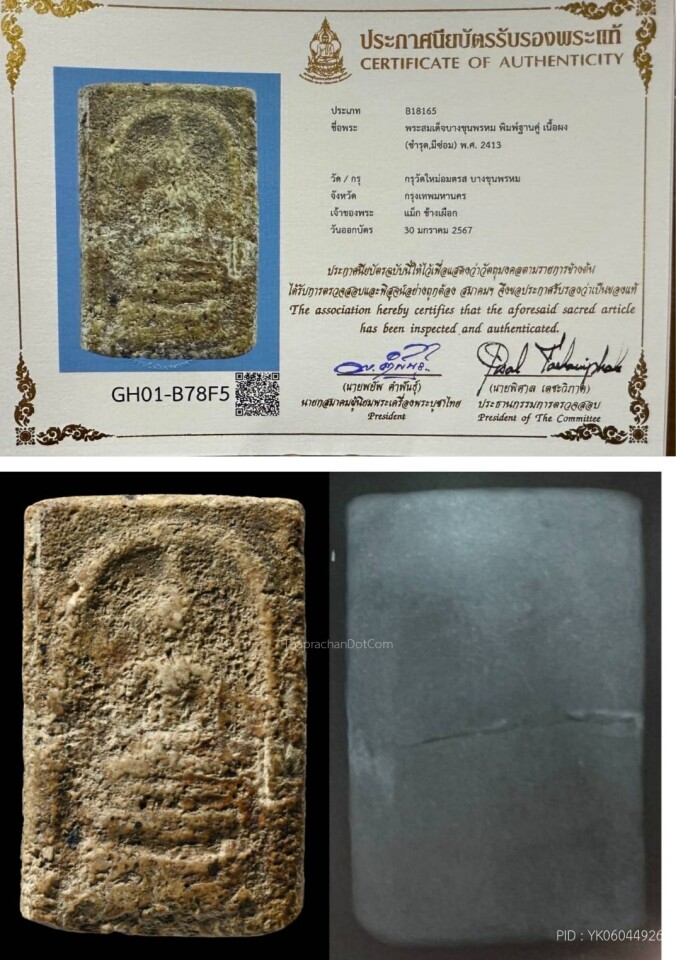 ประกาศนียบัตรรับรองพระแท้
CERTIFICATE OF AUTHENTICITY
ประเภท B18165
ชื่อพระ พระสมเด็จบางขุนพรหม พิมพ์ฐานคู่ เนื้อผง
(ชำรุด,มีซ่อม) พ.ศ. 2413
วัด / กรุ กรุวัดใหม่อมตรส บางขุนพรหม
จังหวัด กรุงเทพมหานคร
เจ้าของพระ แม็ก ช้างเผือก
วันออกบัตร 30 มกราคม 2567
ประกาศนียบัตรฉบับนี้ให้ไว้เพื่อแสดงว่าวัตถุมงคลตามรายการข้างต้น
ได้รับการตรวจสอบและพิสูจน์อย่างถูกต้อง สมาคมฯ จึงขอประกาศรับรองว่าเป็นของแท้
The association hereby certifies that the aforesaid sacred article
has been inspected and authenticated.
GH01-B78F5
(นายพยัพ คำพันธุ์)
นายกสมาคมผู้นิยมพระเครื่องพระบูชาไทย
President
(นายพิศาล เตชะวิภาค)
ประธานกรรมการตรวจสอบ
President of The Committee
ThaprachanDotCom
PID : YK06044926